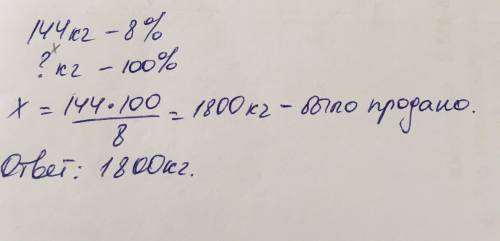 144кг – 8%
?ˣ кг – 100%
X = 144·100 / 8 = 1800кг – было продано.
Ответ: 1800кг.